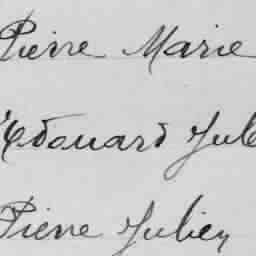 Pierre Marie
Edouard Jul
Pierre Julien